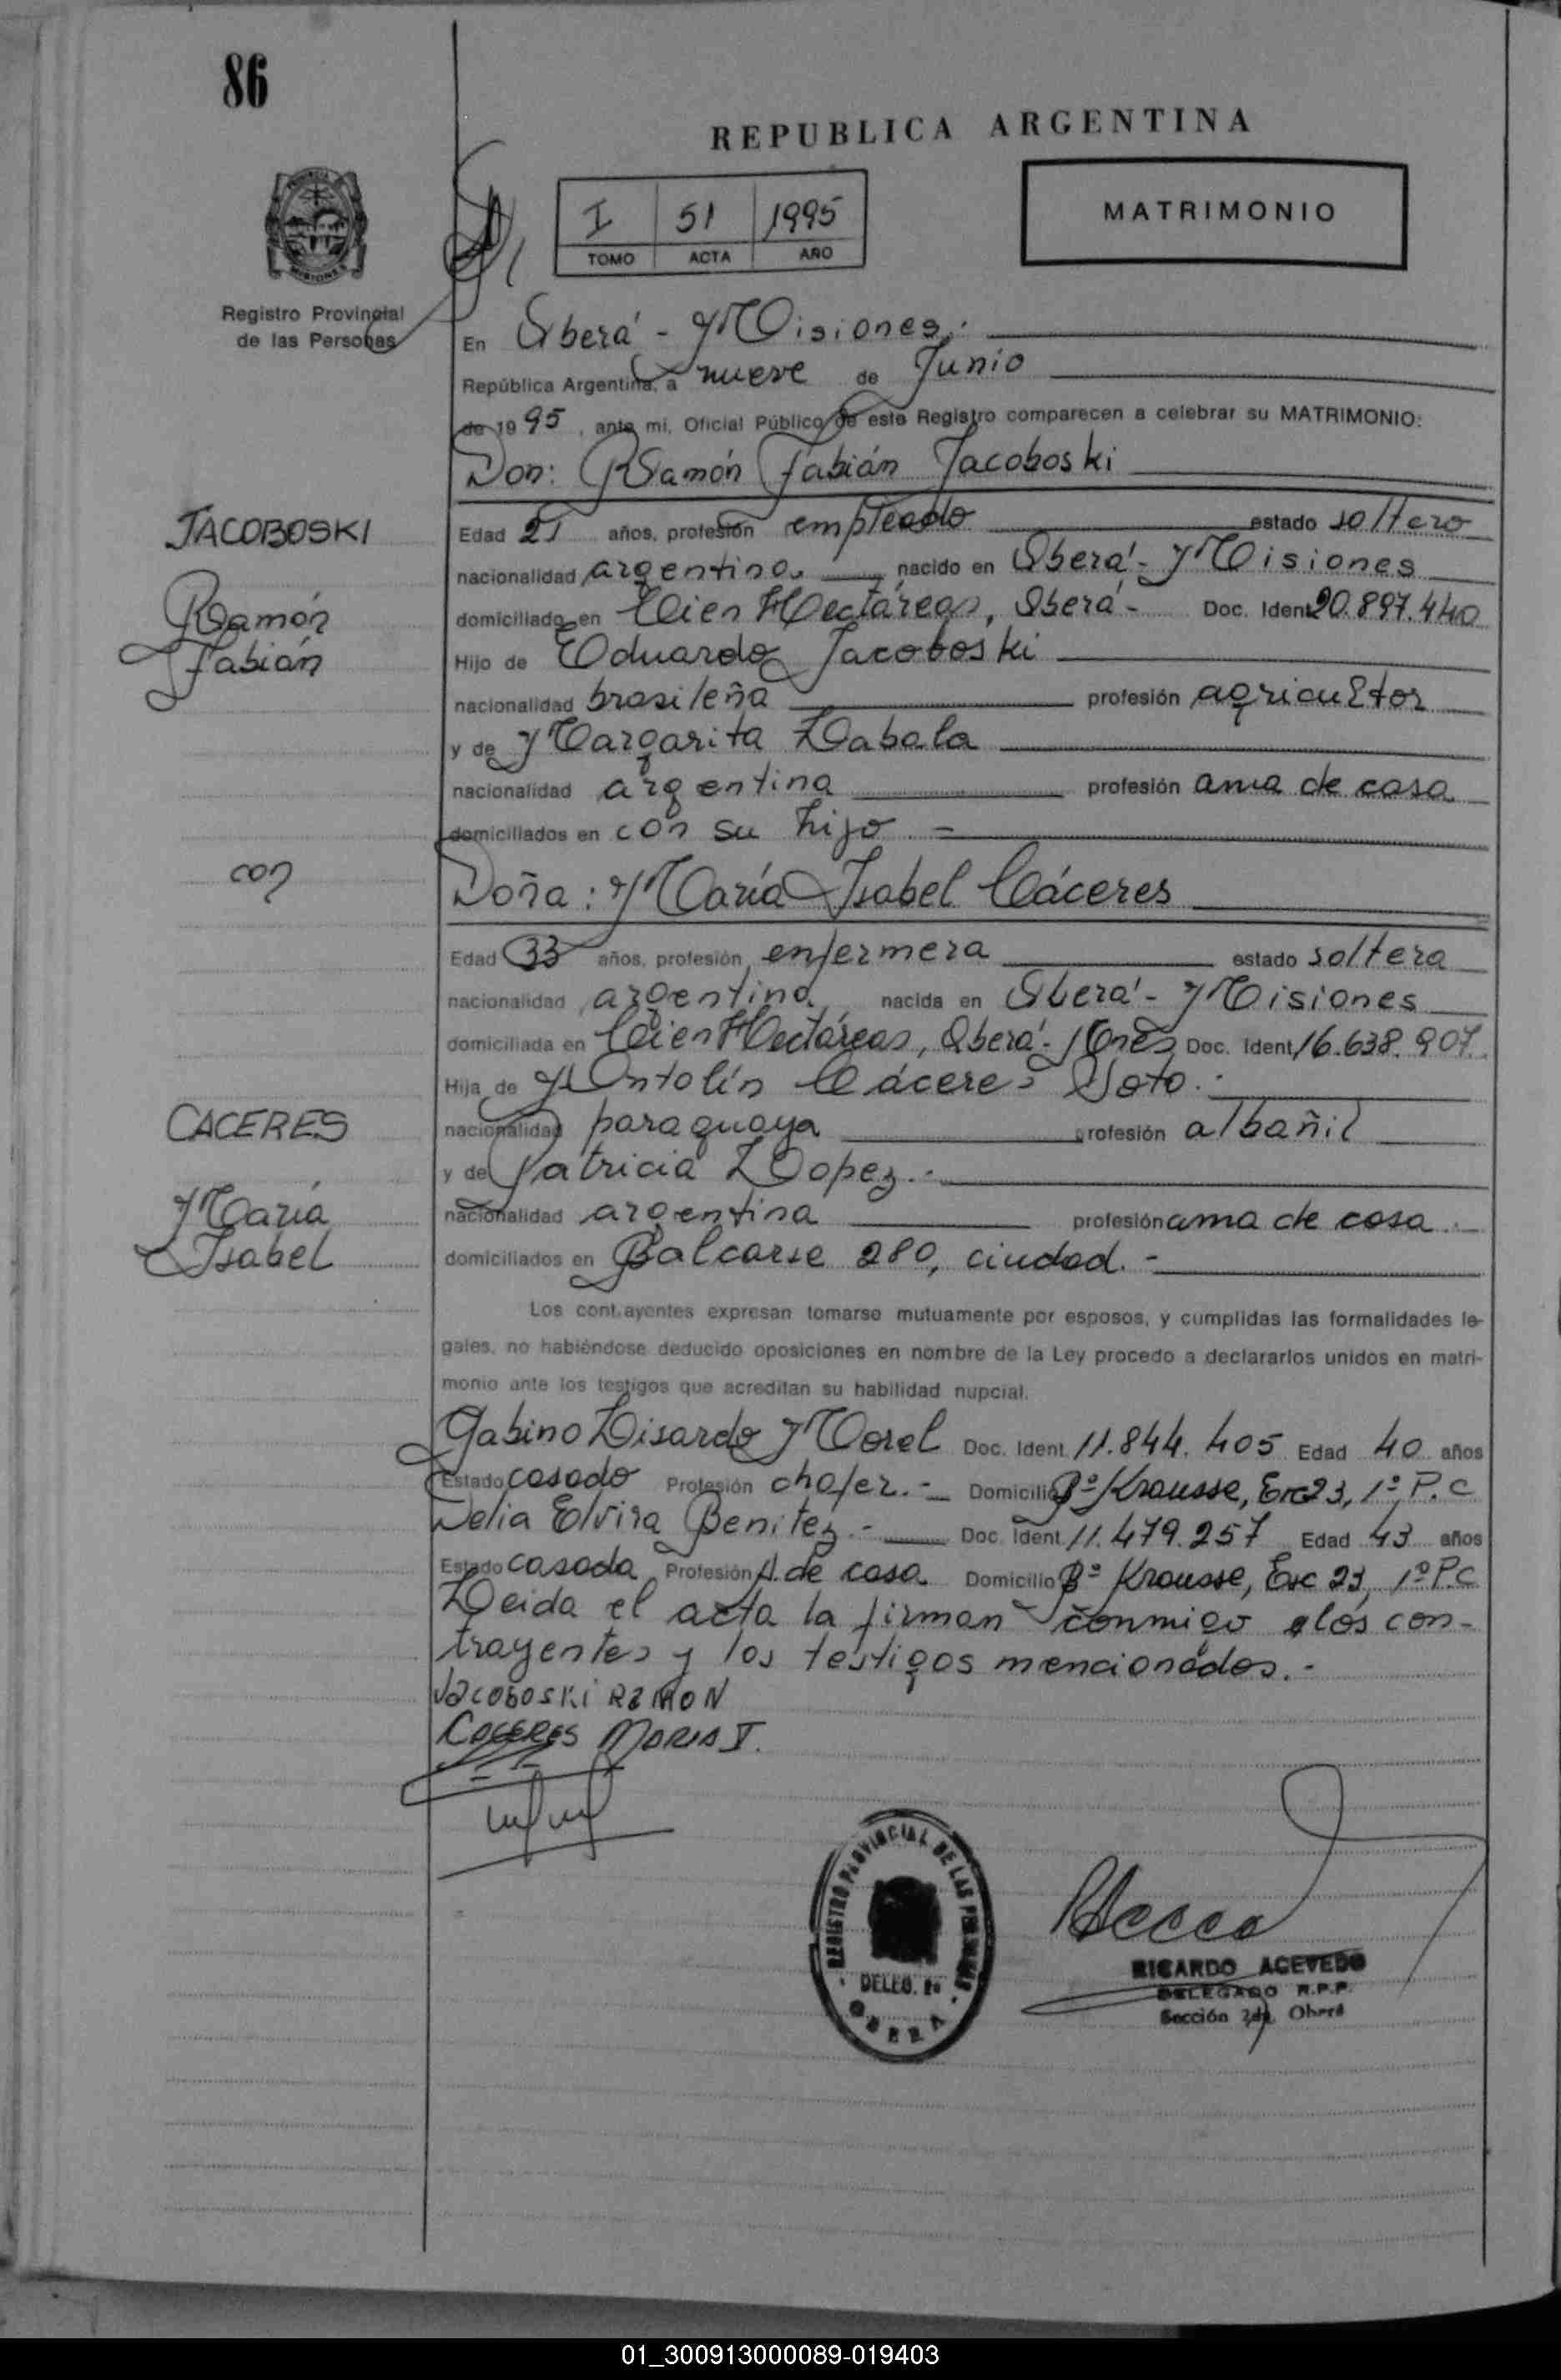 86
REPUBLICA ARGENTINA
I 51 1995
TOMO ACTA AÑO
MATRIMONIO
Registro Provincial
de las Personas
En Oberá - Misiones.-
República Argentina, a nueve de Junio
de 1995, ante mi, Oficial Público de este Registro comparecen a celebrar su MATRIMONIO:
Don: Ramón Fabián Jacoboski
JACOBOSKI
Ramón
Fabián
Edad años, profesión empleado estado soltero
nacionalidad argentina. nacido en Oberá - Misiones
domiciliado en Cien Hectáreas, Oberá - Doc. Ident. 20.897.440
Hijo de Eduardo Jacoboski
nacionalidad brasileña profesión agricultor
y de Margarita Labala
nacionalidad argentina profesión ama de casa
domiciliados en con su hijo =
con
Doña: María Isabel Cáceres
Edad 33 años, profesión enfermera estado soltera
nacionalidad argentina nacida en Oberá - Misiones
domiciliada en Cien Hectáreas, Oberá - Mnes Doc. Ident. 16.638.907
Hija de Antolín Cáceres Soto.-
CACERES
María
Isabel
nacionalidad paraguaya profesión albañil
y de Patricia Lopez.-
nacionalidad argentina profesión ama de casa.
domiciliados en Balcarse 280, ciudad.-
Los contrayentes expresan tomarse mutuamente por esposos, y cumplidas las formalidades le-
gales, no habiéndose deducido oposiciones en nombre de la Ley procedo a declararlos unidos en matri-
monio ante los testigos que acreditan su habilidad nupcial.
Gabino Lisardo Morel Doc. Ident. 11.844.405 Edad 40 años
Estado casado Profesión chofer.- Domicilio Bº Krausse, Esc 23, 1º P.C
Delia Elvira Benitez.- Doc. Ident. 11.479.257 Edad 43 años
Estado casada Profesión A. de casa Domicilio Bº Krausse, Esc 23, 1º P.C
Leida el acta la firman conmigo los con-
trayentes y los testigos mencionados.-
JACOBOSKI RAMON
CACERES MARIA I.
REGISTRO PROVINCIAL DE LAS PERSONAS
DELEG. 2a
OBERA
RICARDO ACEVEDO
DELEGADO R.P.P.
Sección 2da. Oberá
01_300913000089-019403